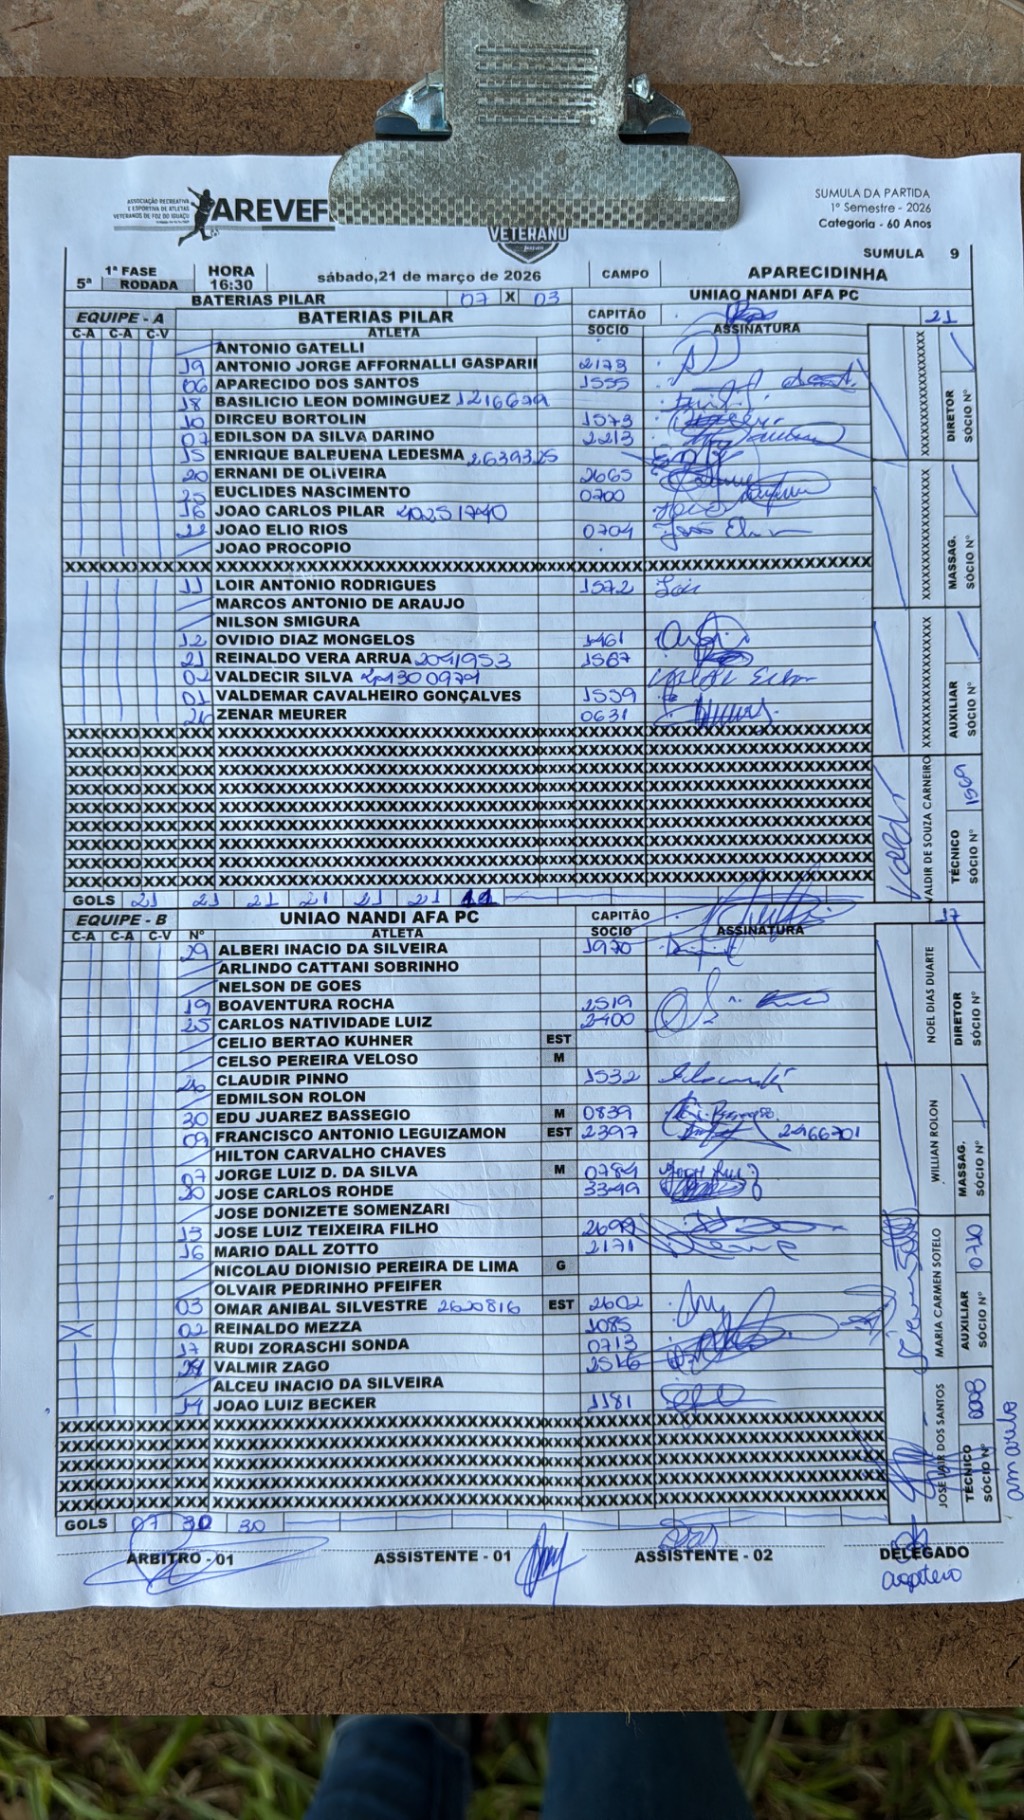 ASSOCIAÇÃO RECREATIVA
E ESPORTIVA DE ATLETAS
VETERANOS DE FOZ DO IGUAÇU
AREVEF
VETERANO
SUMULA DA PARTIDA
1º Semestre - 2026
Categoria - 60 Anos
SUMULA 9
5ª 1ª FASE RODADA HORA 16:30 sábado,21 de março de 2026 CAMPO APARECIDINHA
BATERIAS PILAR 07 X 03 UNIAO NANDI AFA PC
EQUIPE - A BATERIAS PILAR CAPITÃO 21
C-A C-A C-V ATLETA SOCIO ASSINATURA
ANTONIO GATELLI
19 ANTONIO JORGE AFFORNALLI GASPARII 2173
06 APARECIDO DOS SANTOS 1555
18 BASILICIO LEON DOMINGUEZ
10 DIRCEU BORTOLIN 1573
07 EDILSON DA SILVA DARINO 2213
15 ENRIQUE BALBUENA LEDESMA
20 ERNANI DE OLIVEIRA 2665
25 EUCLIDES NASCIMENTO 0700
16 JOAO CARLOS PILAR
22 JOAO ELIO RIOS 0704
JOAO PROCOPIO
XXXXXXXXXXXXXXXXXXXXXXXXXXXXXXXXXXXXXXXX
11 LOIR ANTONIO RODRIGUES 1572 Loir
MARCOS ANTONIO DE ARAUJO
NILSON SMIGURA
12 OVIDIO DIAZ MONGELOS 1461
21 REINALDO VERA ARRUA 2041953 1567
02 VALDECIR SILVA
01 VALDEMAR CAVALHEIRO GONÇALVES 1559
26 ZENAR MEURER 0631
DIRETOR
SÓCIO Nº
MASSAG.
SÓCIO Nº
AUXILIAR
SÓCIO Nº
VALDIR DE SOUZA CARNEIRO
TÉCNICO
SÓCIO Nº 1569
GOLS 21 21 21 21 21 21 11
EQUIPE - B UNIAO NANDI AFA PC CAPITÃO 17
C-A C-A C-V Nº ATLETA SOCIO ASSINATURA
29 ALBERI INACIO DA SILVEIRA 1970
ARLINDO CATTANI SOBRINHO
NELSON DE GOES
19 BOAVENTURA ROCHA 2519
25 CARLOS NATIVIDADE LUIZ 2400
CELIO BERTAO KUHNER EST
CELSO PEREIRA VELOSO M
26 CLAUDIR PINNO 1532
EDMILSON ROLON
30 EDU JUAREZ BASSEGIO M 0839
09 FRANCISCO ANTONIO LEGUIZAMON EST 2397 2966701
HILTON CARVALHO CHAVES
07 JORGE LUIZ D. DA SILVA M 0784
20 JOSE CARLOS ROHDE 3349
JOSE DONIZETE SOMENZARI
13 JOSE LUIZ TEIXEIRA FILHO 2699
16 MARIO DALL ZOTTO 2171
NICOLAU DIONISIO PEREIRA DE LIMA G
OLVAIR PEDRINHO PFEIFER
03 OMAR ANIBAL SILVESTRE 2620816 EST 2602
X 02 REINALDO MEZZA 1085
17 RUDI ZORASCHI SONDA 0713
VALMIR ZAGO 2516
ALCEU INACIO DA SILVEIRA
14 JOAO LUIZ BECKER 1181
NOEL DIAS DUARTE
DIRETOR
SÓCIO Nº
WILLIAN ROLON
MASSAG.
SÓCIO Nº
MARIA CARMEN SOTELO
AUXILIAR
SÓCIO Nº 0710
JOSE VAIR DOS SANTOS
TÉCNICO
SÓCIO Nº
amarelo
GOLS 07 30 30
ARBITRO - 01 ASSISTENTE - 01 ASSISTENTE - 02 DELEGADO